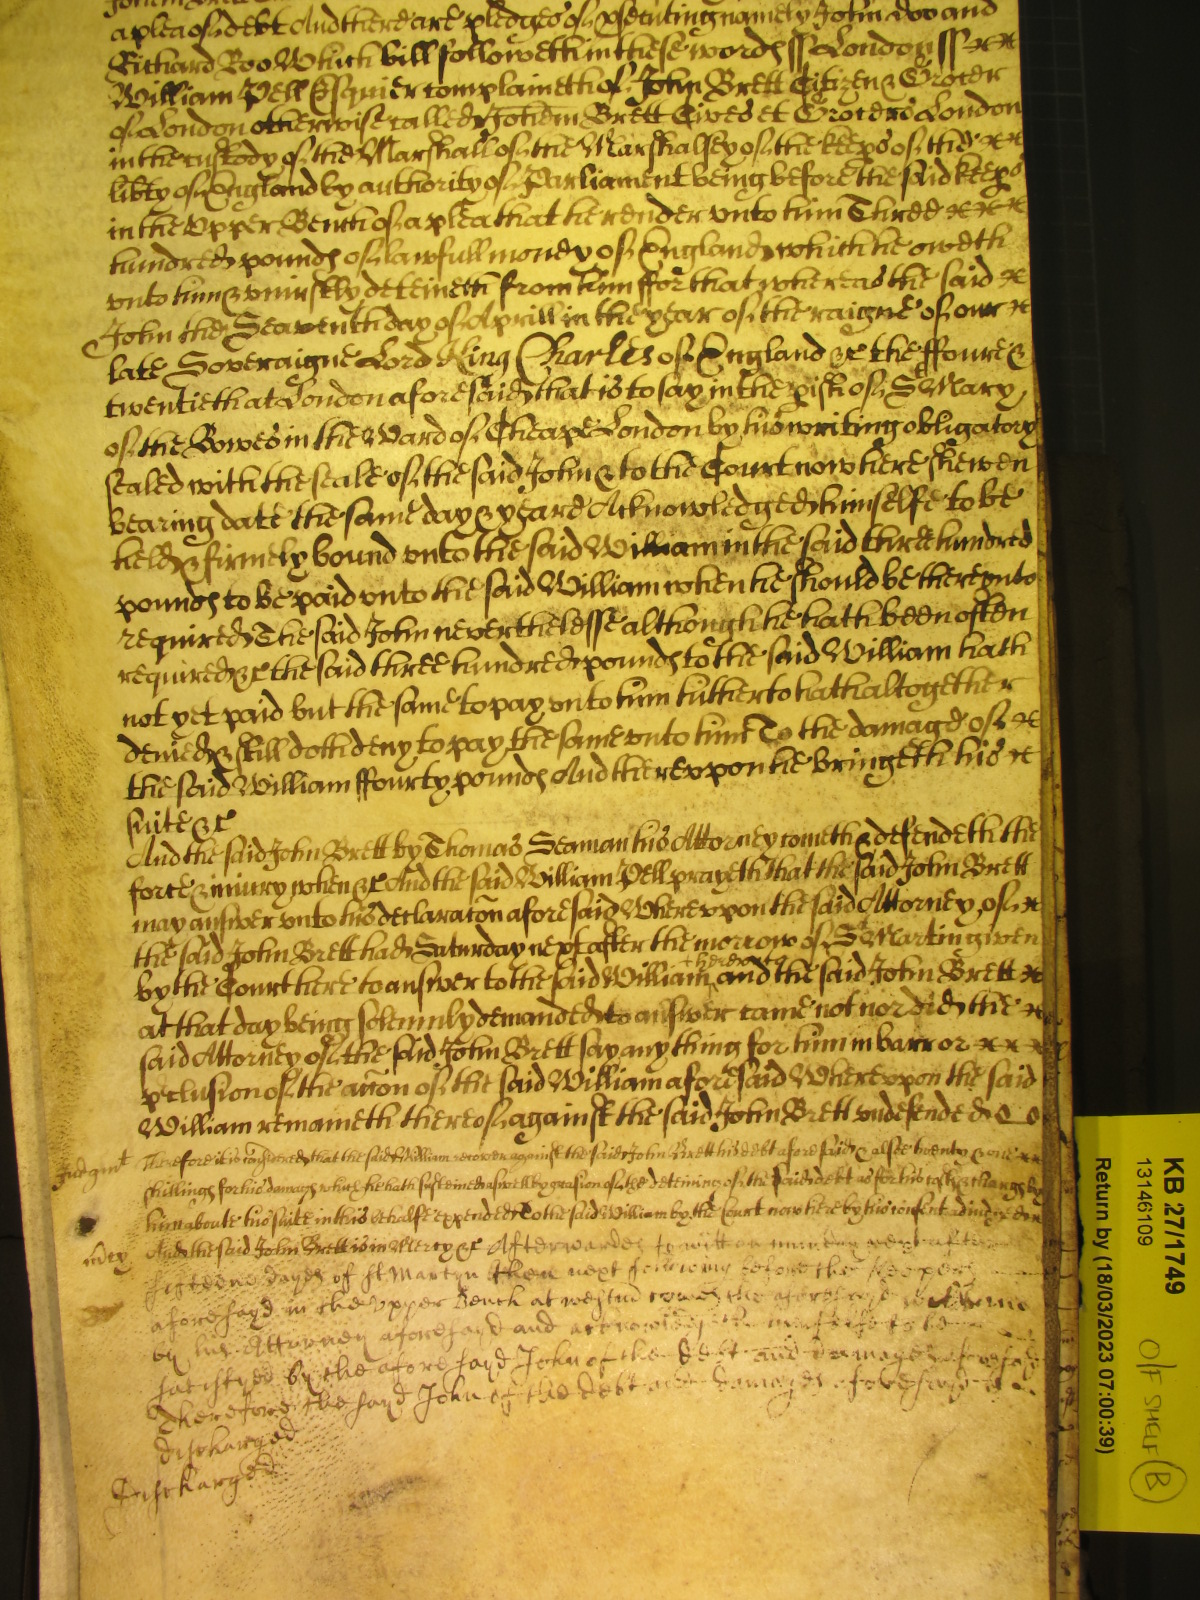 a plea of debt And there are pledges of psecuting namely John Doo and
Richard Roo Which bill followeth in these words ss London ss
William Pell Esquier complaineth of John Brett Citizen & Grocer
of London otherwise called Johem Brett Cives et Grocerũ London
in the custody of the Marshall of the Marshalsey of the keeps of the
libty of England by authority of Parliament being before the said keeps
in the Upper Bench of a plea that he render unto him Three
hundred pounds of lawfull money of England which he oweth
unto him & uniustly deteineth from him ffor that whereas the said
John the Seaventh day of Aprill in the year of the raigne of our
late Soveraigne Lord King Charles of England &c the ffoure &
twentieth at London aforesaid that is to say in the pish of St Mary
of the Bowes in the Ward of Cheape London by his writing obligatory
sealed with the seale of the said John & to the Court now here shewen
bearing date the same day & yeare Acknowledged himselfe to be
held & firmely bound unto the said William in the said three hundred
pounds to be paid unto the said William when he should be thereunto
required The said John neverthelesse although he hath been often
required &c the said three hundred pounds to the said William hath
not yet paid but the same to pay unto him hitherto hath altogether
denied & still doth deny to pay the same unto him To the damage of
the said William ffourty pounds And thereupon he bringeth his
suite &c
And the said John Brett by Thomas Seaman his Attorney cometh & defendeth the
force & iniury when &c And the said William Pell prayeth that the said John Brett
may answer unto his declaracon aforesaid Whereupon the said Attorney of
the said John Brett had Saturday next after the morrow of St Martin given
by the Court here to answer to the said William thereunto and the said John Brett
at that day being solemnly demanded to answer came not nor did the
said Attorney of the said John Brett say any thing for him in barr or
pclusion of the accon of the said William aforesaid Whereupon the said
William remaineth thereof against the said John Brett undefended
Judgmt Therefore it is considered that the said William recover against the said John Brett his debt aforesaid & alsoe twenty & one
shillings for his damages which he hath susteined aswell by occasion of the deteining of the said debt as for his costs & charges by
him aboute his suite in this behalfe expended To the said William by the Court now here by his consent adiudged
mcy And the said John Brett is in Mercy &c Afterwardes to witt on munday next after
fifteene dayes of St Martyn then next following before the keepers
aforesayd in the upper Bench at westm cometh the aforesayd William
by his Attorney aforesayd and acknowledgeth himselfe to be
satisfyed by the aforesayd John of the debt and damages aforesayd
Therefore the sayd John of the debt and damages aforesayd is
discharged
Discharged
KB 27/1749
13146109
Return by (18/03/2023 07:00:39)
O/F SHELF B